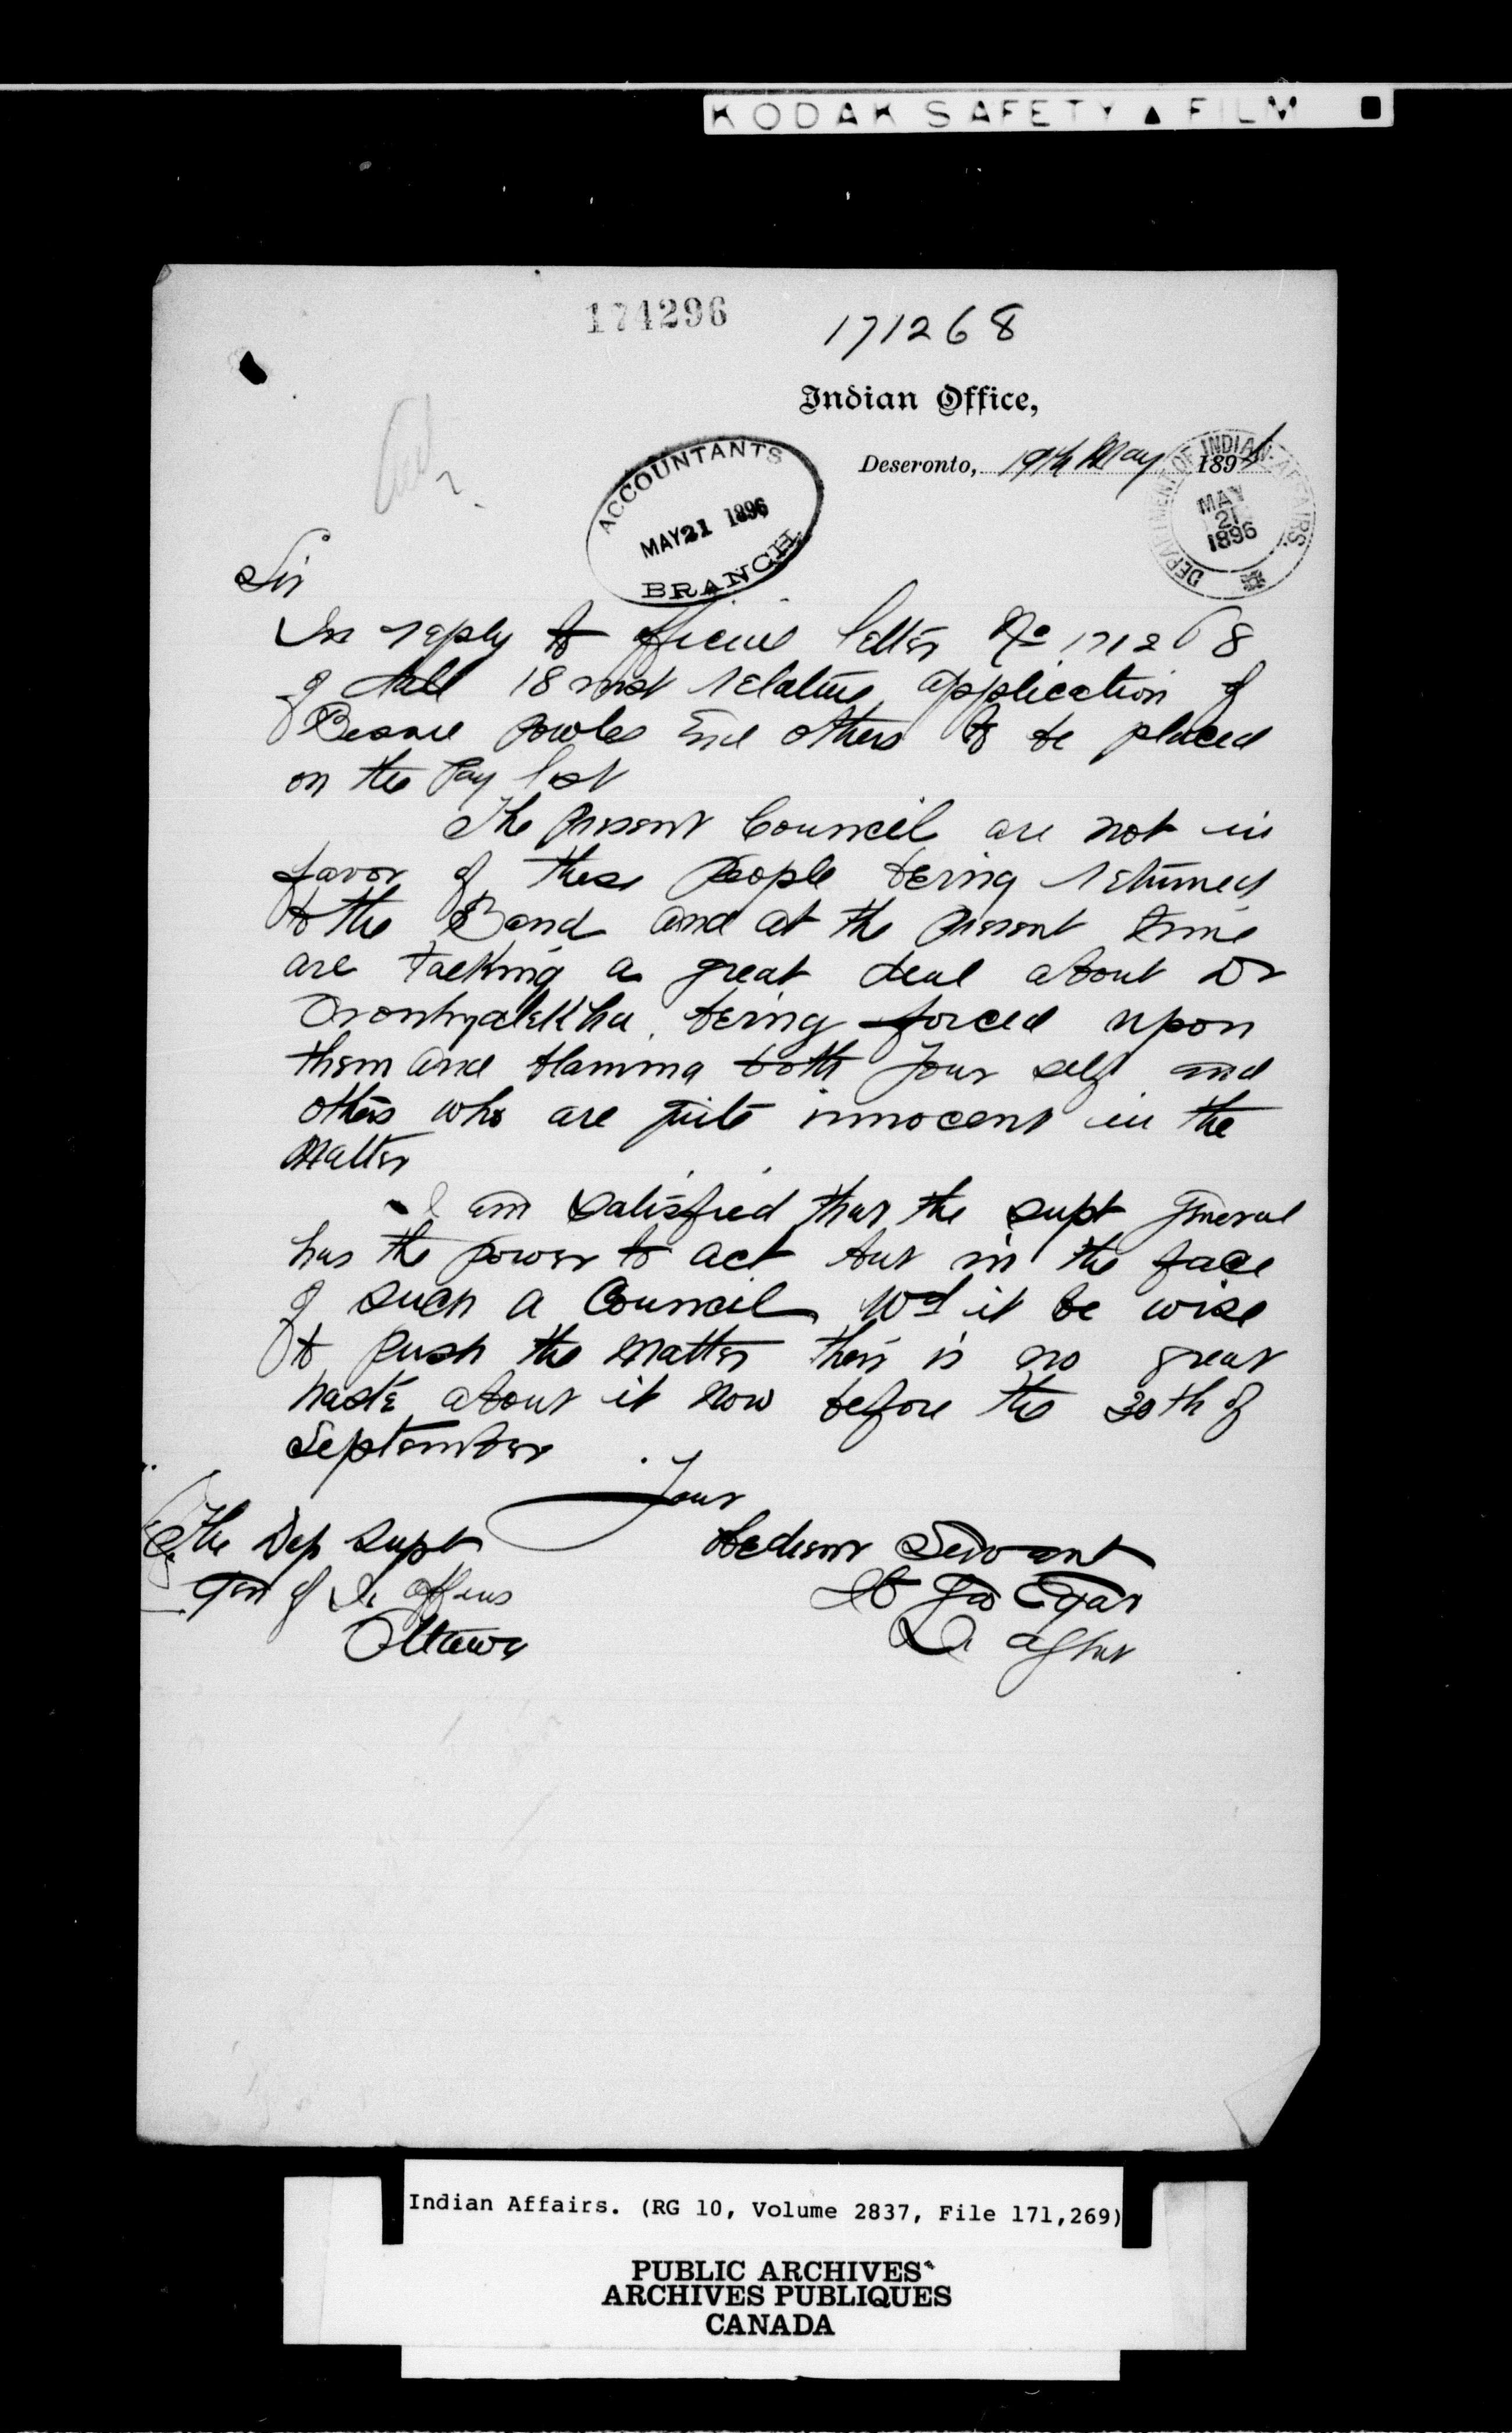 KODAK SAFETY ▲ FILM
174296
171268
Indian Office,
Deseronto, 19th May 189
ACCOUNTANTS
MAY 21 1896
BRANCH
DEPARTMENT OF INDIAN AFFAIRS.
MAY
21
1896
Sir
In reply to official letter No 171268
of the 18 inst relative application of
Bessie Powles and others to be placed
on the Pay list
The present Council are not in
favor of these People being returned
to the Band and at the present time
are talking a great deal about Dr
Oronhyatekha being forced upon
them and blaming both your self and
others who are quite innocent in the
Matter
I am satisfied that the Supt General
has the power to act but in the face
of such a Council Wd it be wise
to push the Matter their is no great
haste about it now before the 30th of
September
Your
The Dep Supt
Obedient Servant
Gen of In Affairs
Ottawa
Egar
In Agent
Indian Affairs. (RG 10, Volume 2837, File 171,269)
PUBLIC ARCHIVES
ARCHIVES PUBLIQUES
CANADA